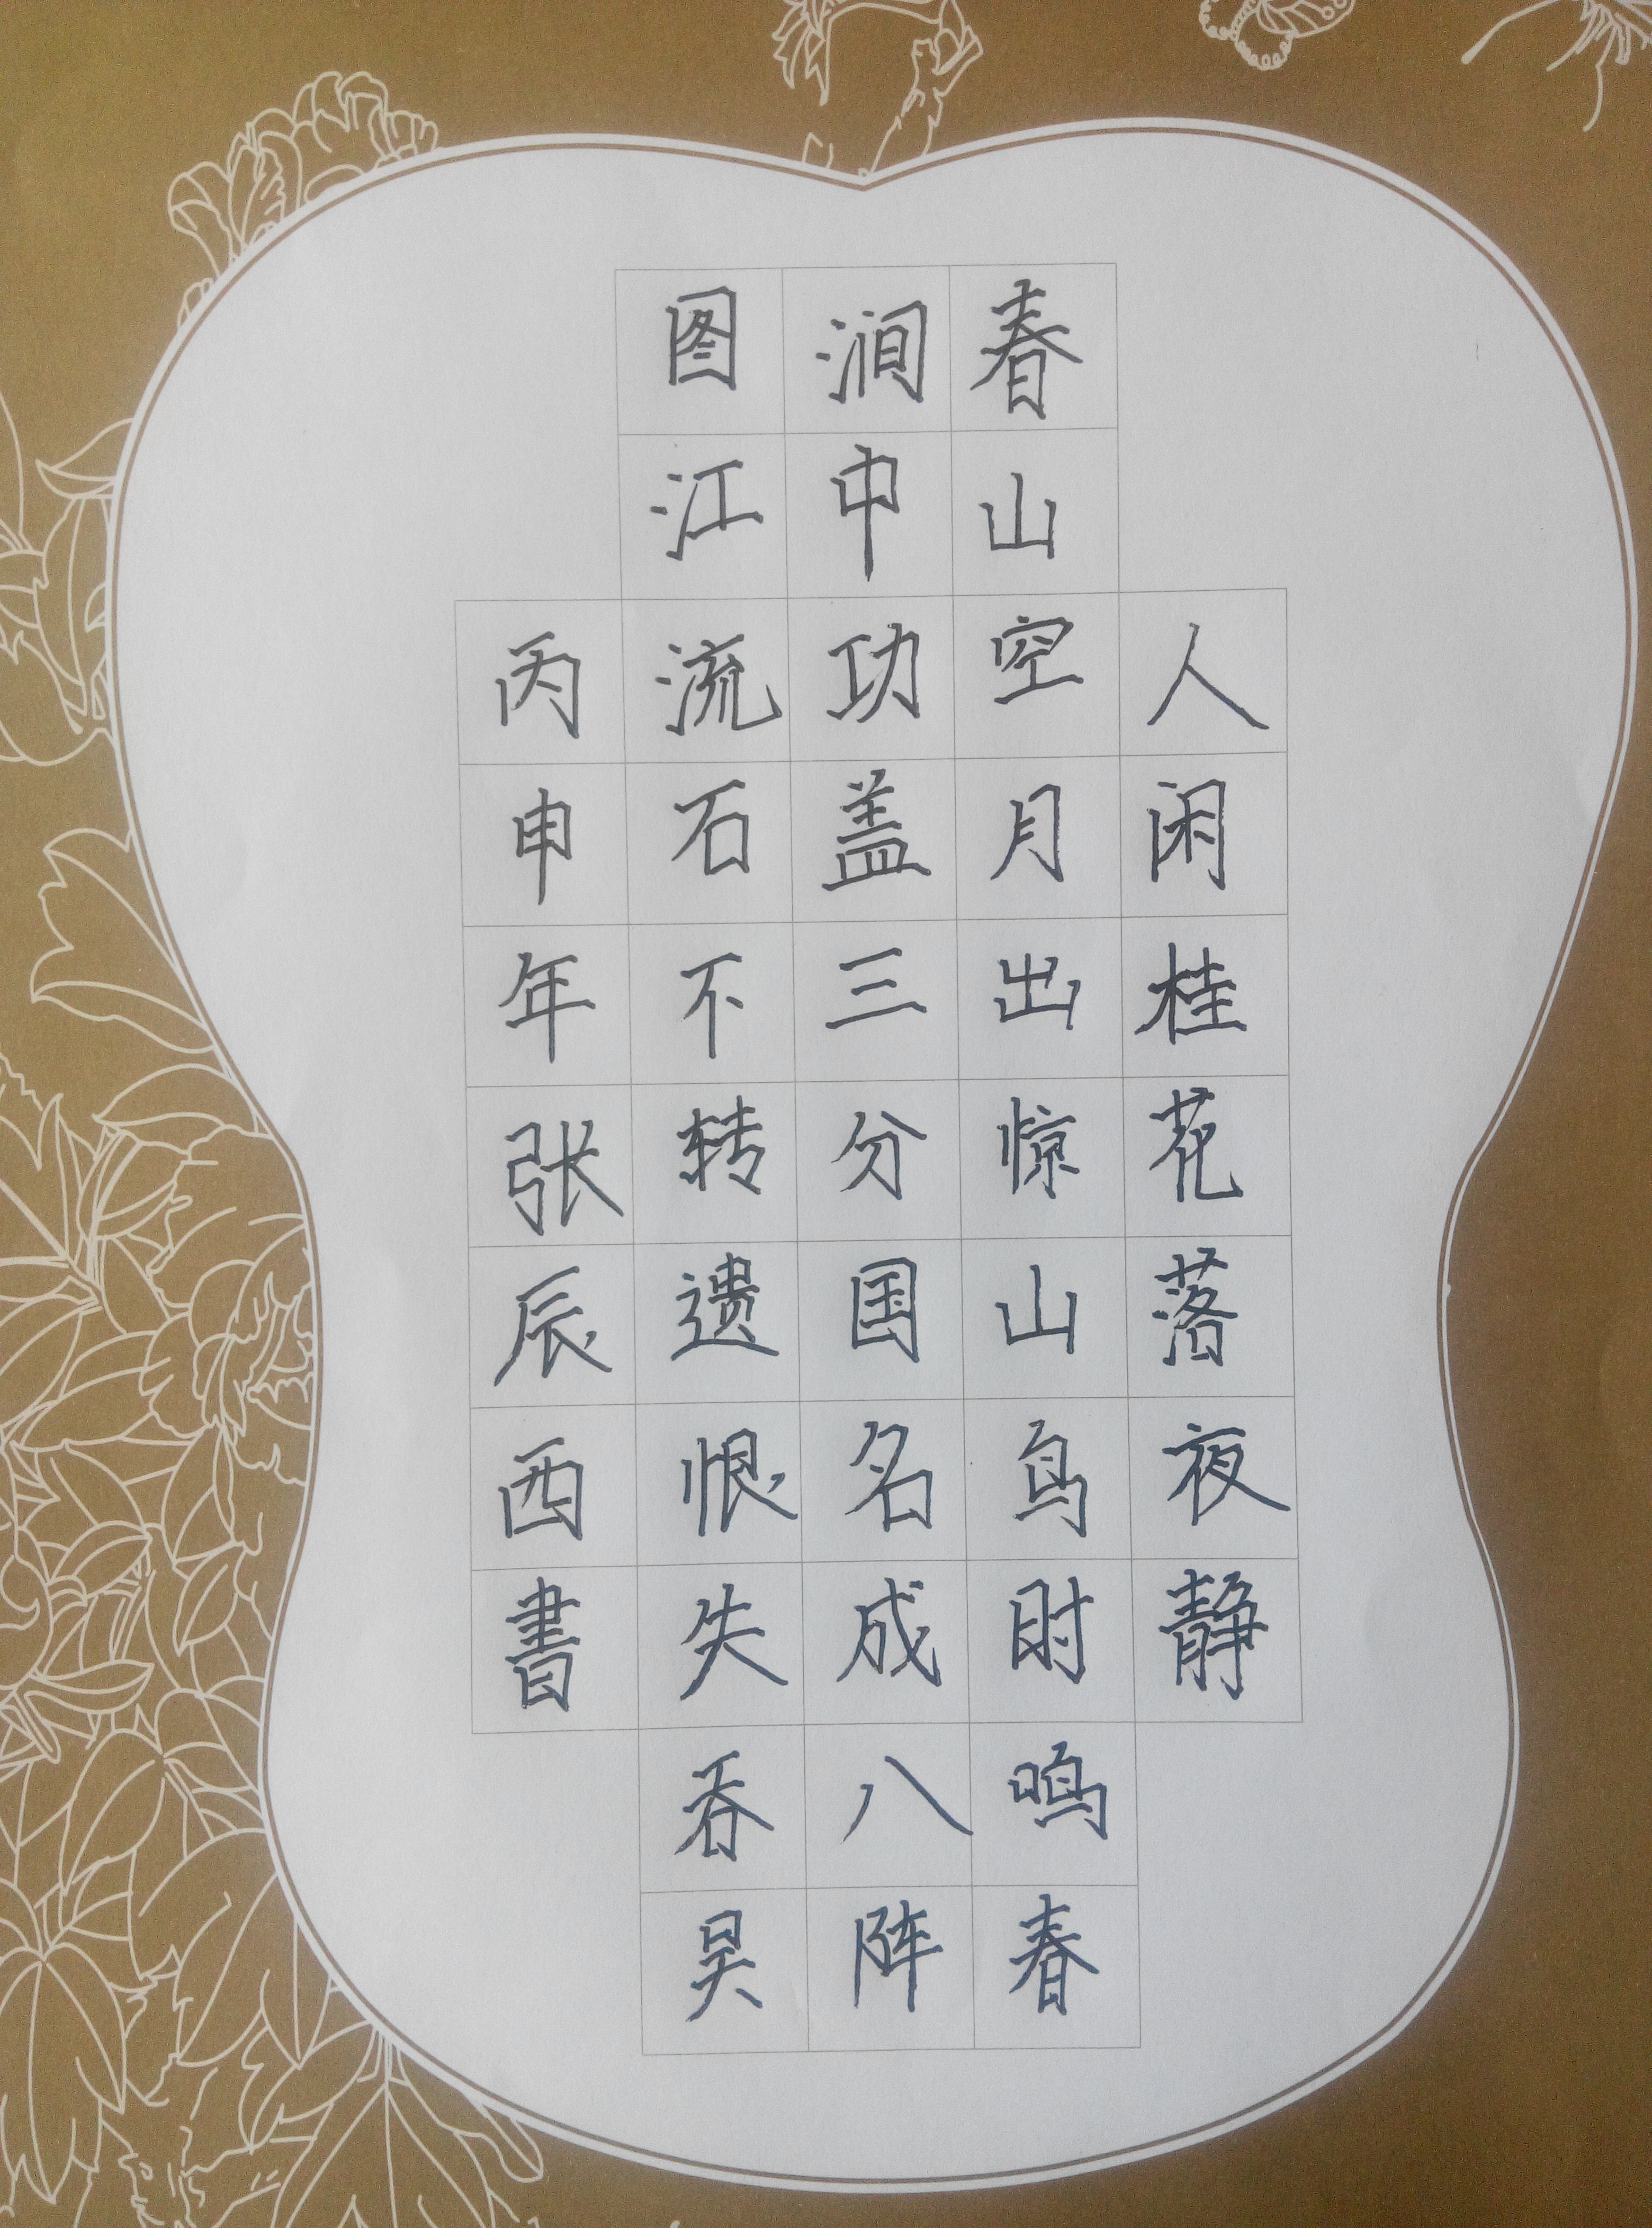 人闲桂花落夜静
春山空月出惊山鸟时鸣春
涧中功盖三分国名成八阵
图江流石不转遗恨失吞吴
丙申年张辰西書